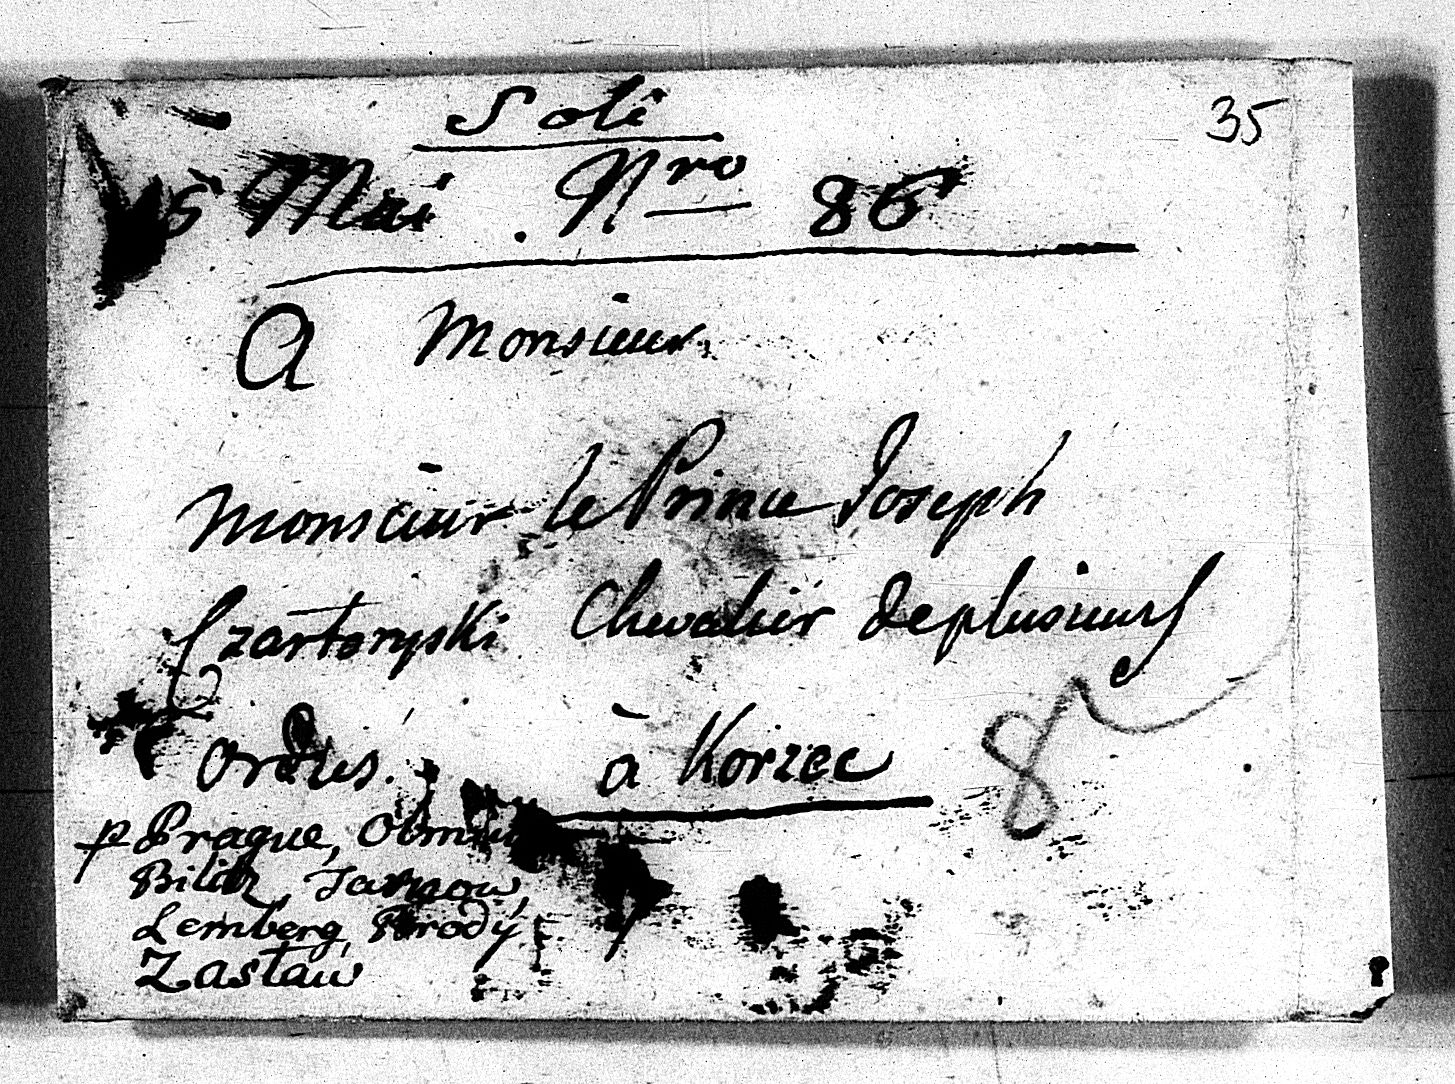 Soli
35
5 Mai . Nro 86
A Monsieur
Monsieur le Prince Joseph
Czartoryski Chevalier de plusieurs
Ordres. à Korzec
8
p Prague, Olmütz
Bilitz, Tarnow,
Lemberg, Brody,
Zaslaw